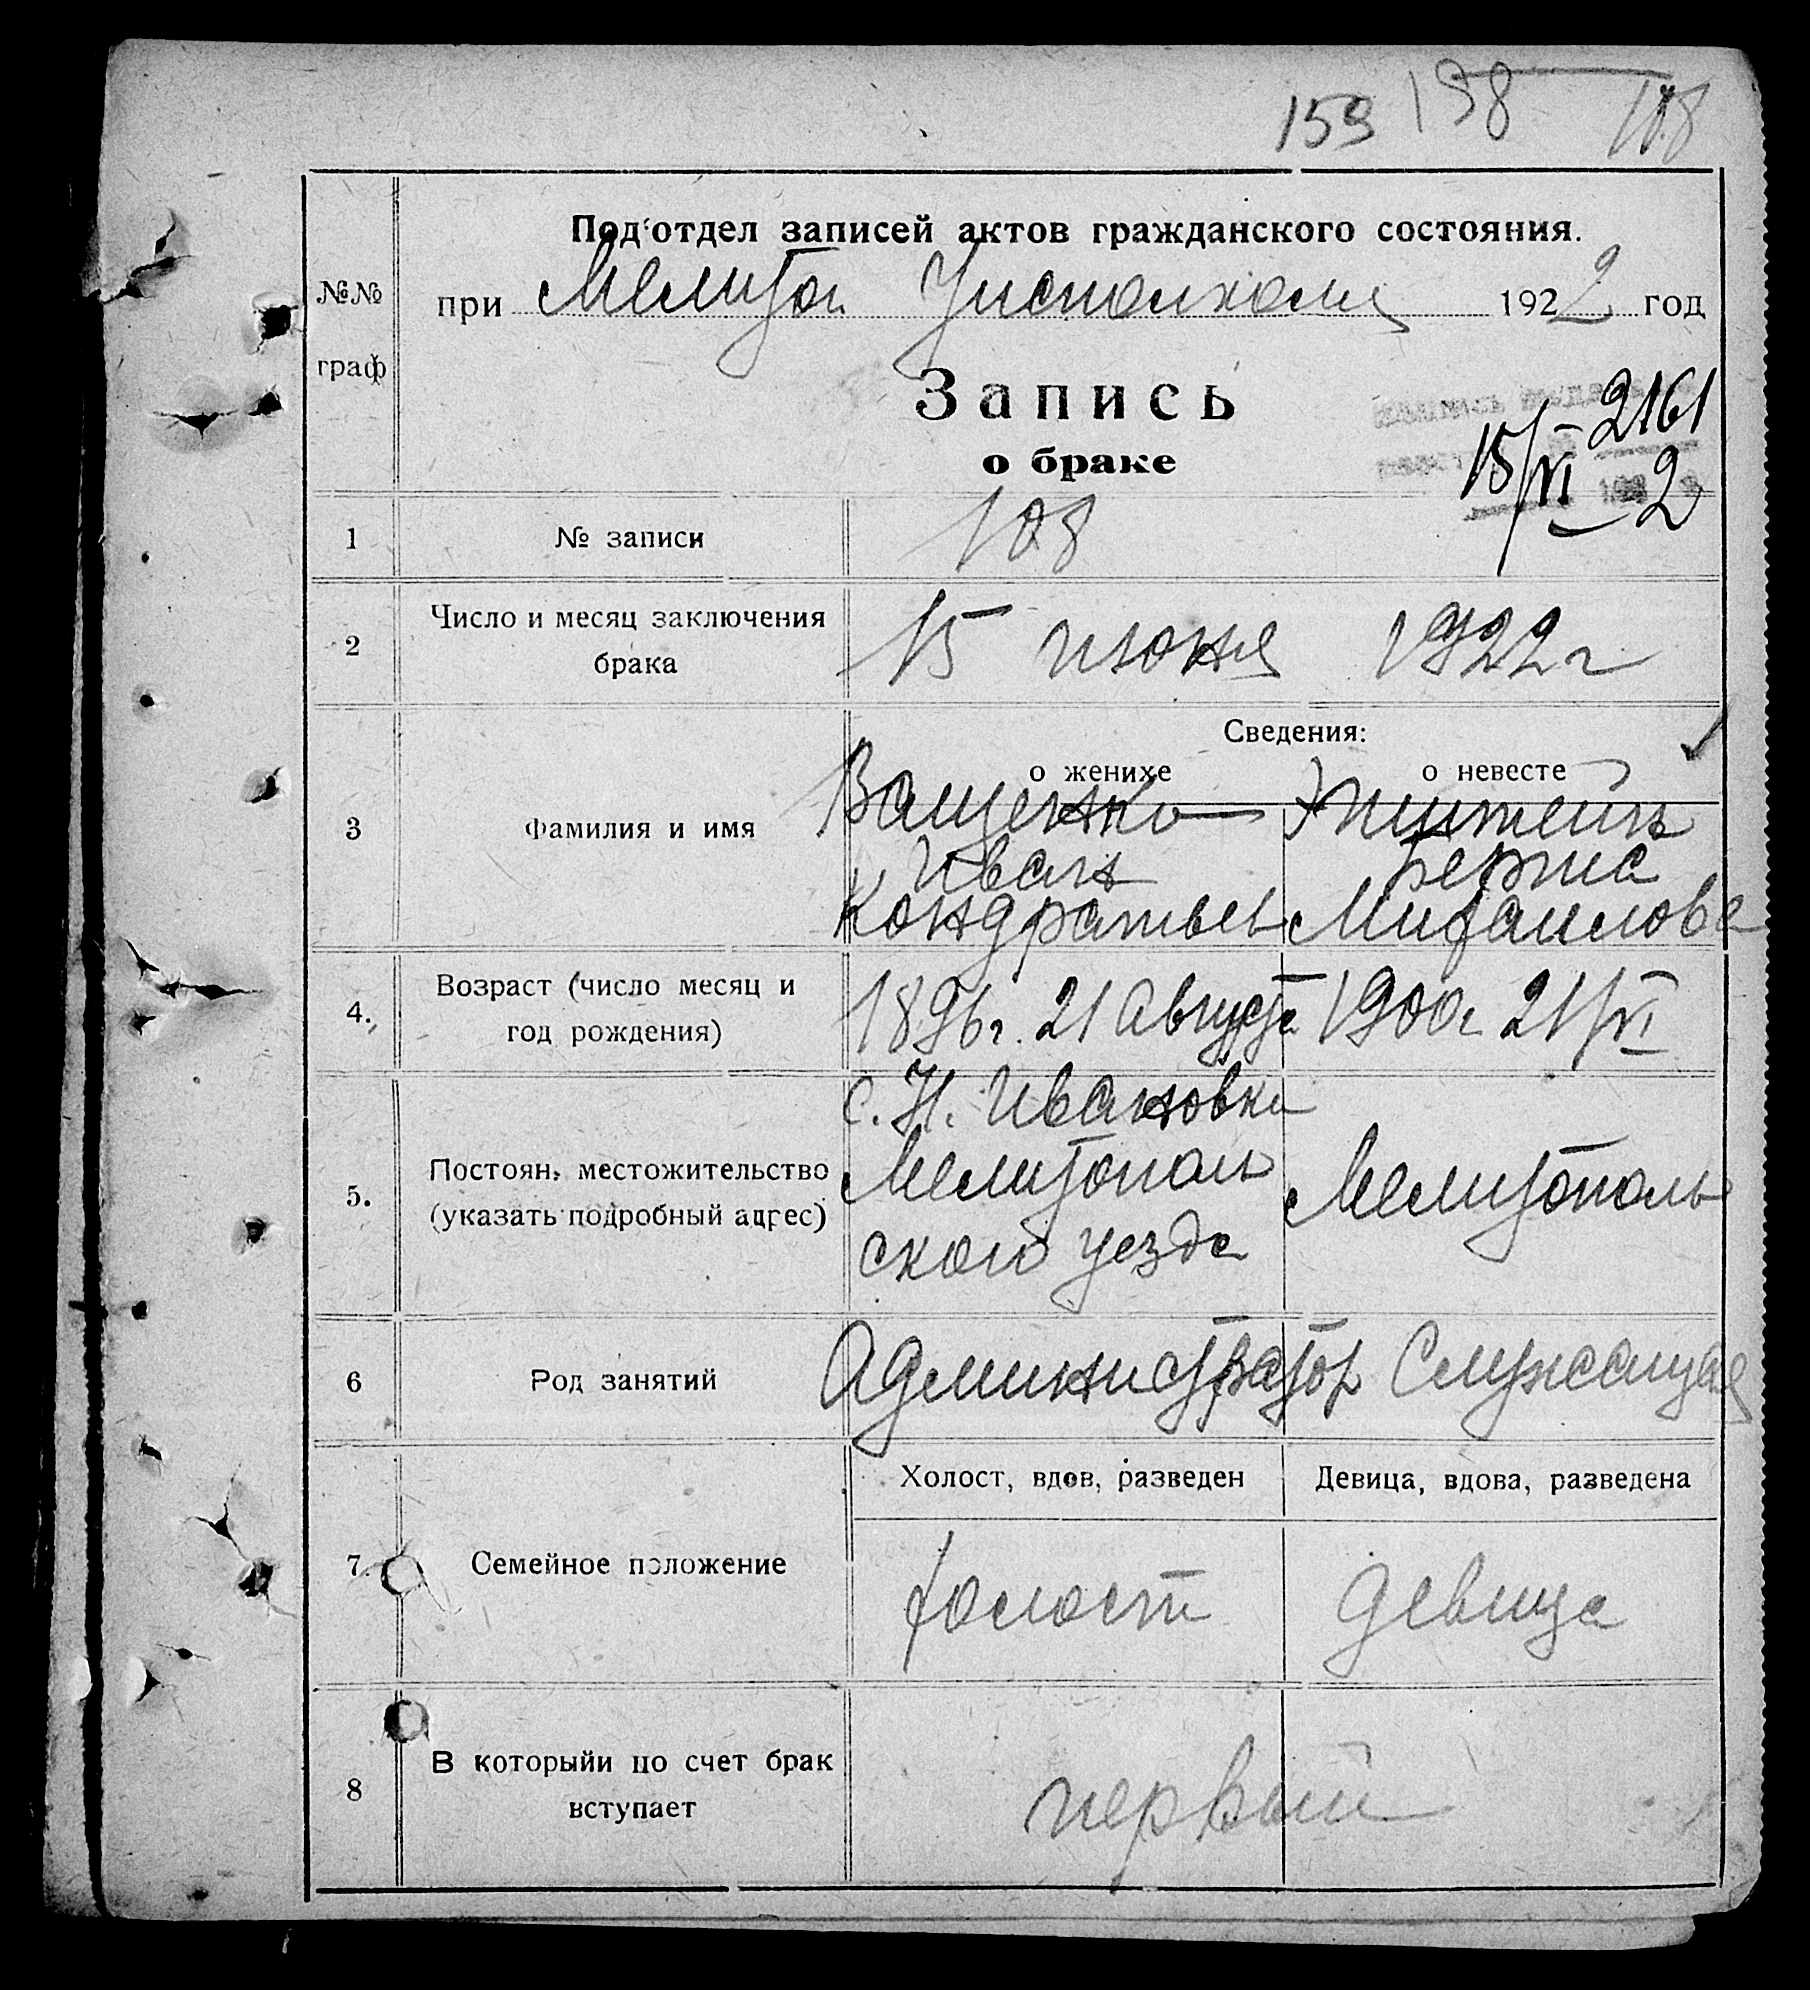 159 198 108
Под'отдел записей актов гражданского состояния.
№№
граф
при Мелитоп Уисполкоме 1922 год
Запись
о браке
2161
15/VI 2
1 № записи 108
2 Число и месяц заключения
брака
15 июня 1922 г
Сведения:
о женихе о невесте
3 Фамилия и имя
Ващенко
Иван
Кондратьев
Эпштейн
Берта
Михаилова
4. Возраст (число месяц и
год рождения)
1896 г. 21 Августа
1900 г 21/VI
5. Постоян. местожительство
(указать подробный адрес)
с. Н. Ивановка
Мелитополь
ского уезда
Мелитополь
6 Род занятий
Администратор
Служащая
7. Семейное положение
Холост, вдов, разведен
Девица, вдова, разведена
холост
девица
8 В которыйи по счет брак
вступает
первый